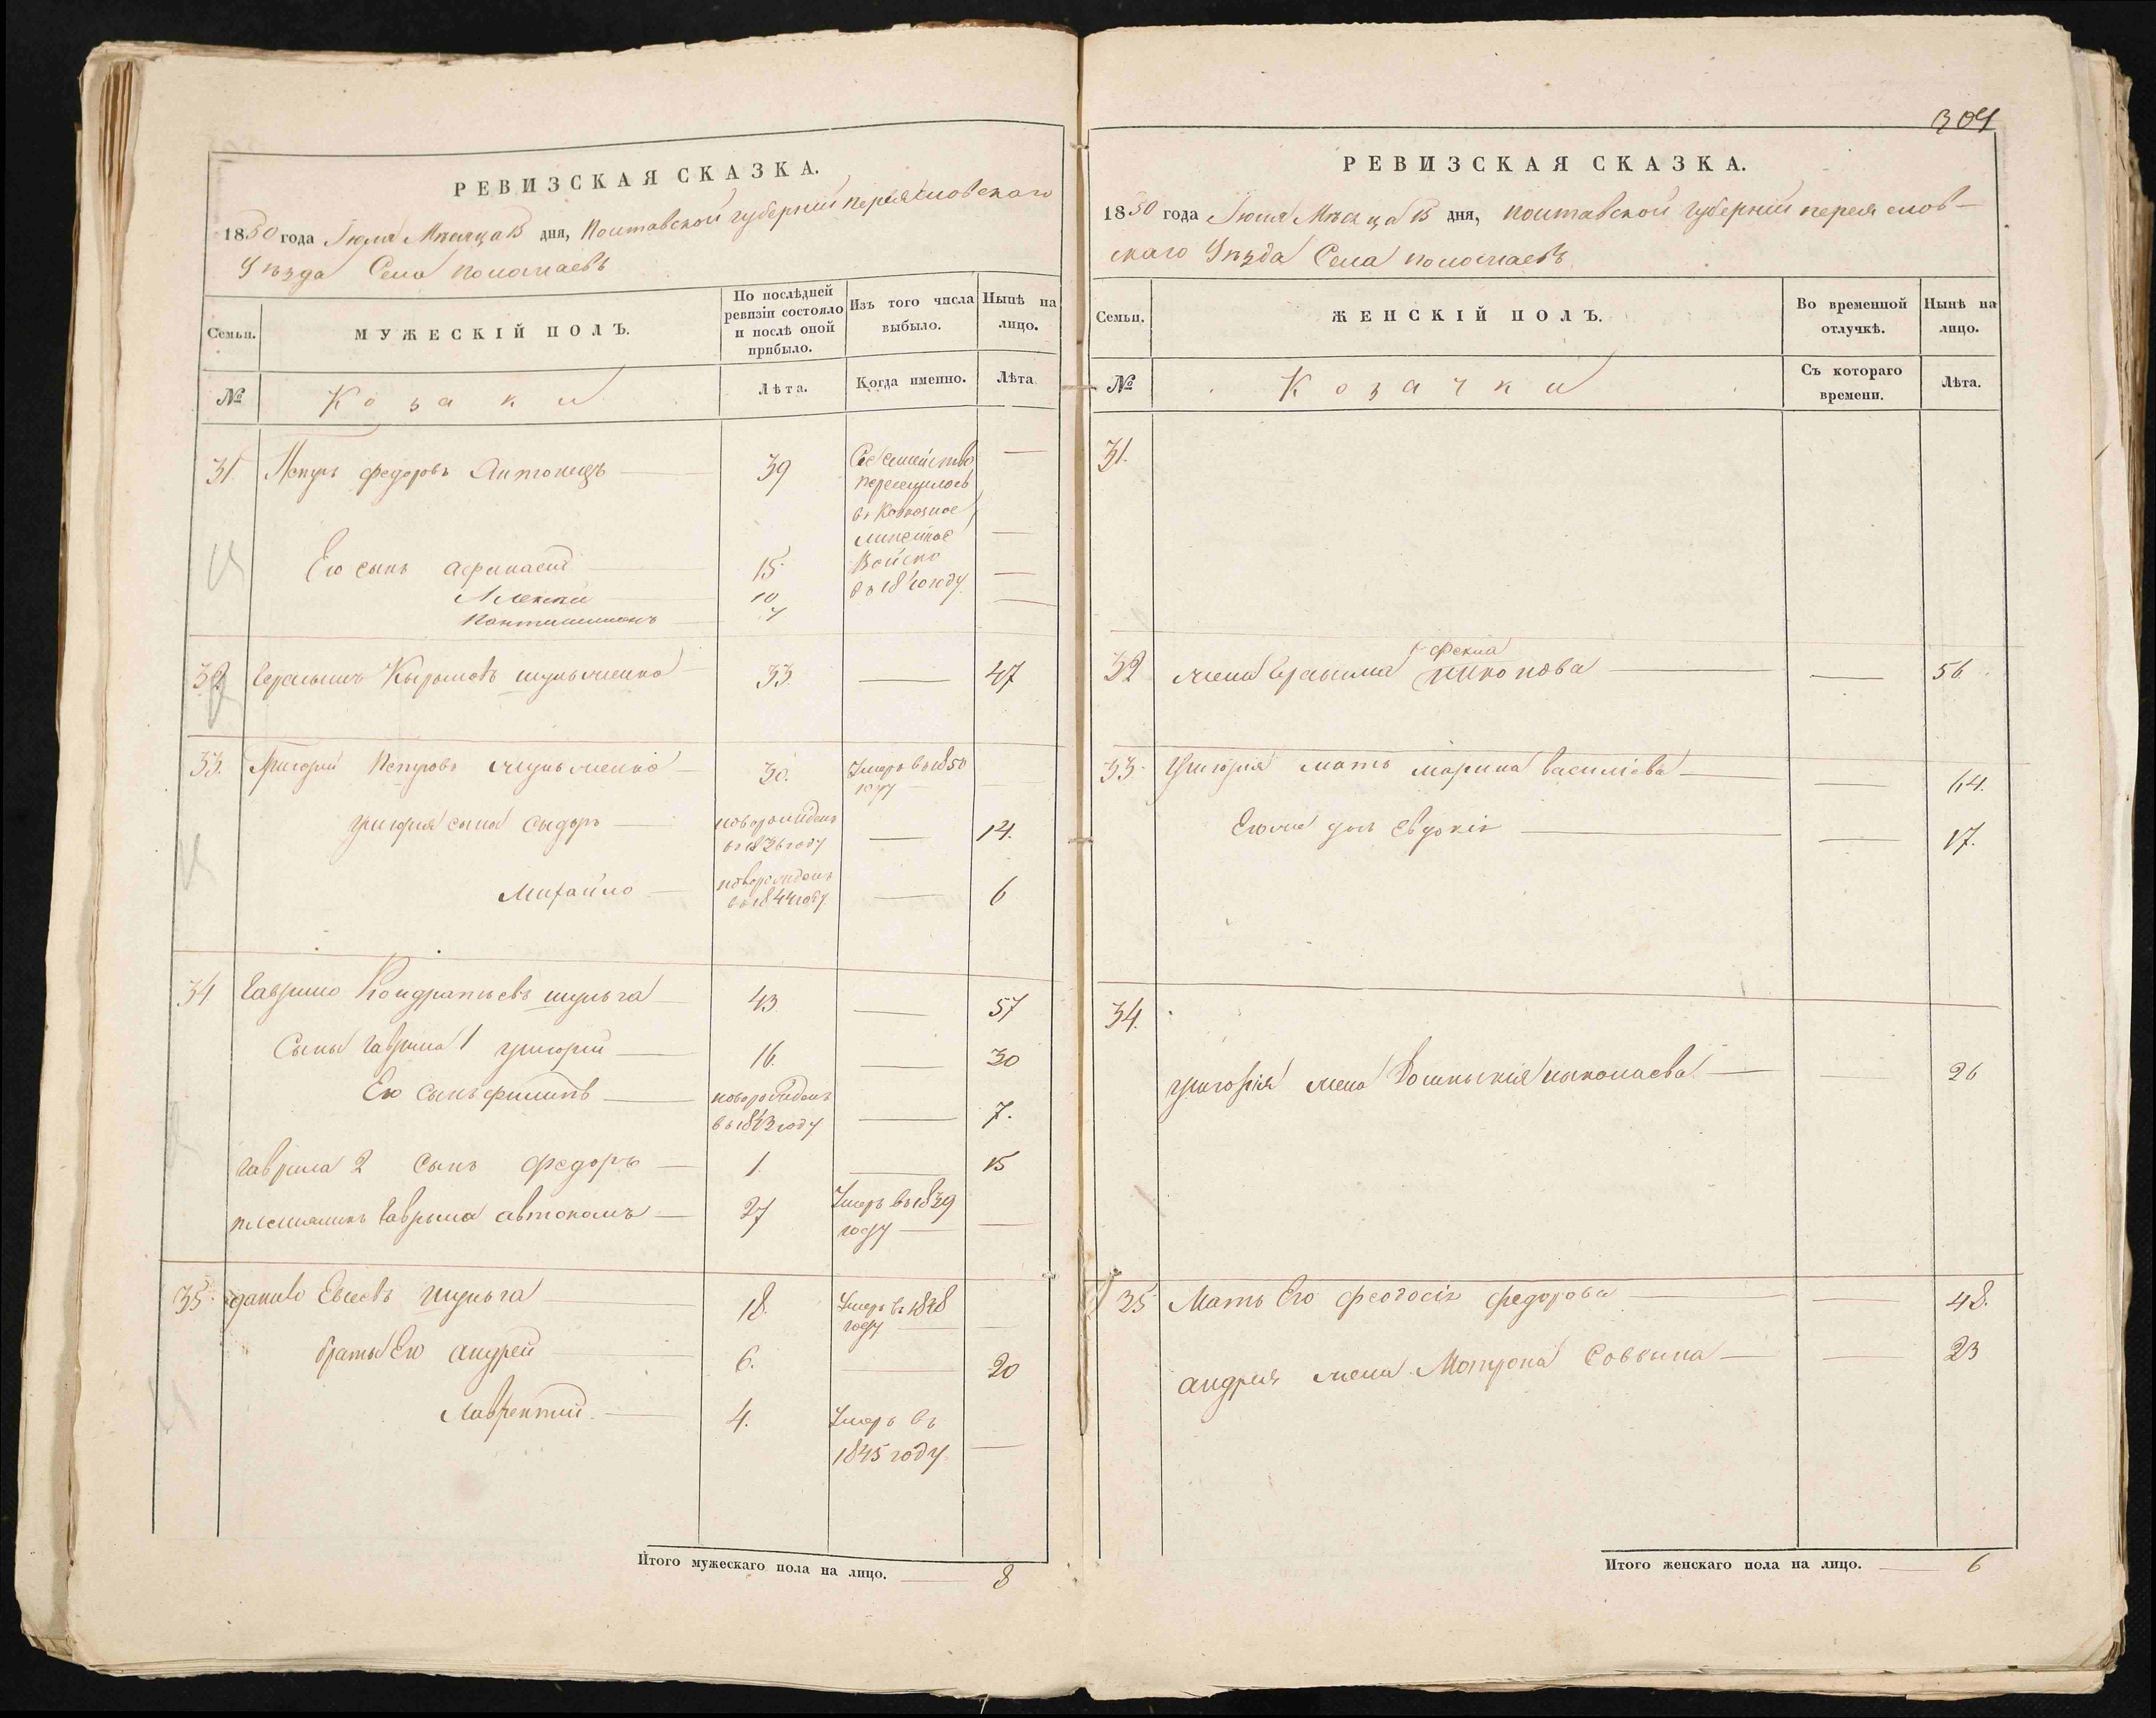 РЕВИЗСКАЯ СКАЗКА.
1850 года Іюля Мѣсяца 15 дня, Полтавской губерніи переяславскаго
Уѣзда Села
Семьи.
МУЖЕСКІЙ ПОЛЪ.
По послѣдней ревизіи состояло и послѣ оной прибыло.
Изъ того числа выбыло.
Нынѣ на лицо.
№
Козаки
Лѣта.
Когда именно.
Лѣта
31 Петръ федоровъ Антонецъ 39
Его сынъ Афанасій 15
Алексей 10
Пантилимонъ
въ Кавказное
линейное
Войско
32 Герасимъ шульженко 33 — 47
33. Григорій Петровъ шульженко 30. Умеръ въ 1850 году —
Григорія сыны Сыдоръ новорожденъ въ 1836 году — 14.
Михайло новорожденъ въ 1844 году — 6
34 Гаврило Кондратьевъ шульга 43 — 57
Сыны Гаврила 1 григорій 16. — 30
Его сынъ филипъ новорожденъ въ 1843 году — 7.
Гаврила 2 сынъ федоръ 1. — 15
племяникъ Гаврыла автономъ 27 Умеръ въ 1839 году —
35. данило Евсеевъ шульга 18. Умеръ въ 1848 году —
братья Его андрей 6. — 20
Лаврентий 4. Умеръ въ
1845 году. —
Итого мужескаго пола на лицо. — 8
304
РЕВИЗСКАЯ СКАЗКА.
1850 года Іюля Мѣсяца 15 дня, полтавской губерніи переяслов-
скаго Уѣзда Села
Семьи.
ЖЕНСКІЙ ПОЛЪ.
Во временной отлучкѣ.
Нынѣ на лицо.
№
Козачки
Съ котораго времени.
Лѣта.
31.
32 жена Герасима Фекла никонова — 56
33. Григорія мать марина василіева — 64.
Его же дочь Евдокія — 17.
34.
григорія жена николаева — 26
35 Мать Его феодосія федорова — 48.
андрея жена Мотрона Саввина — 23
Итого женскаго пола на лицо. — 6